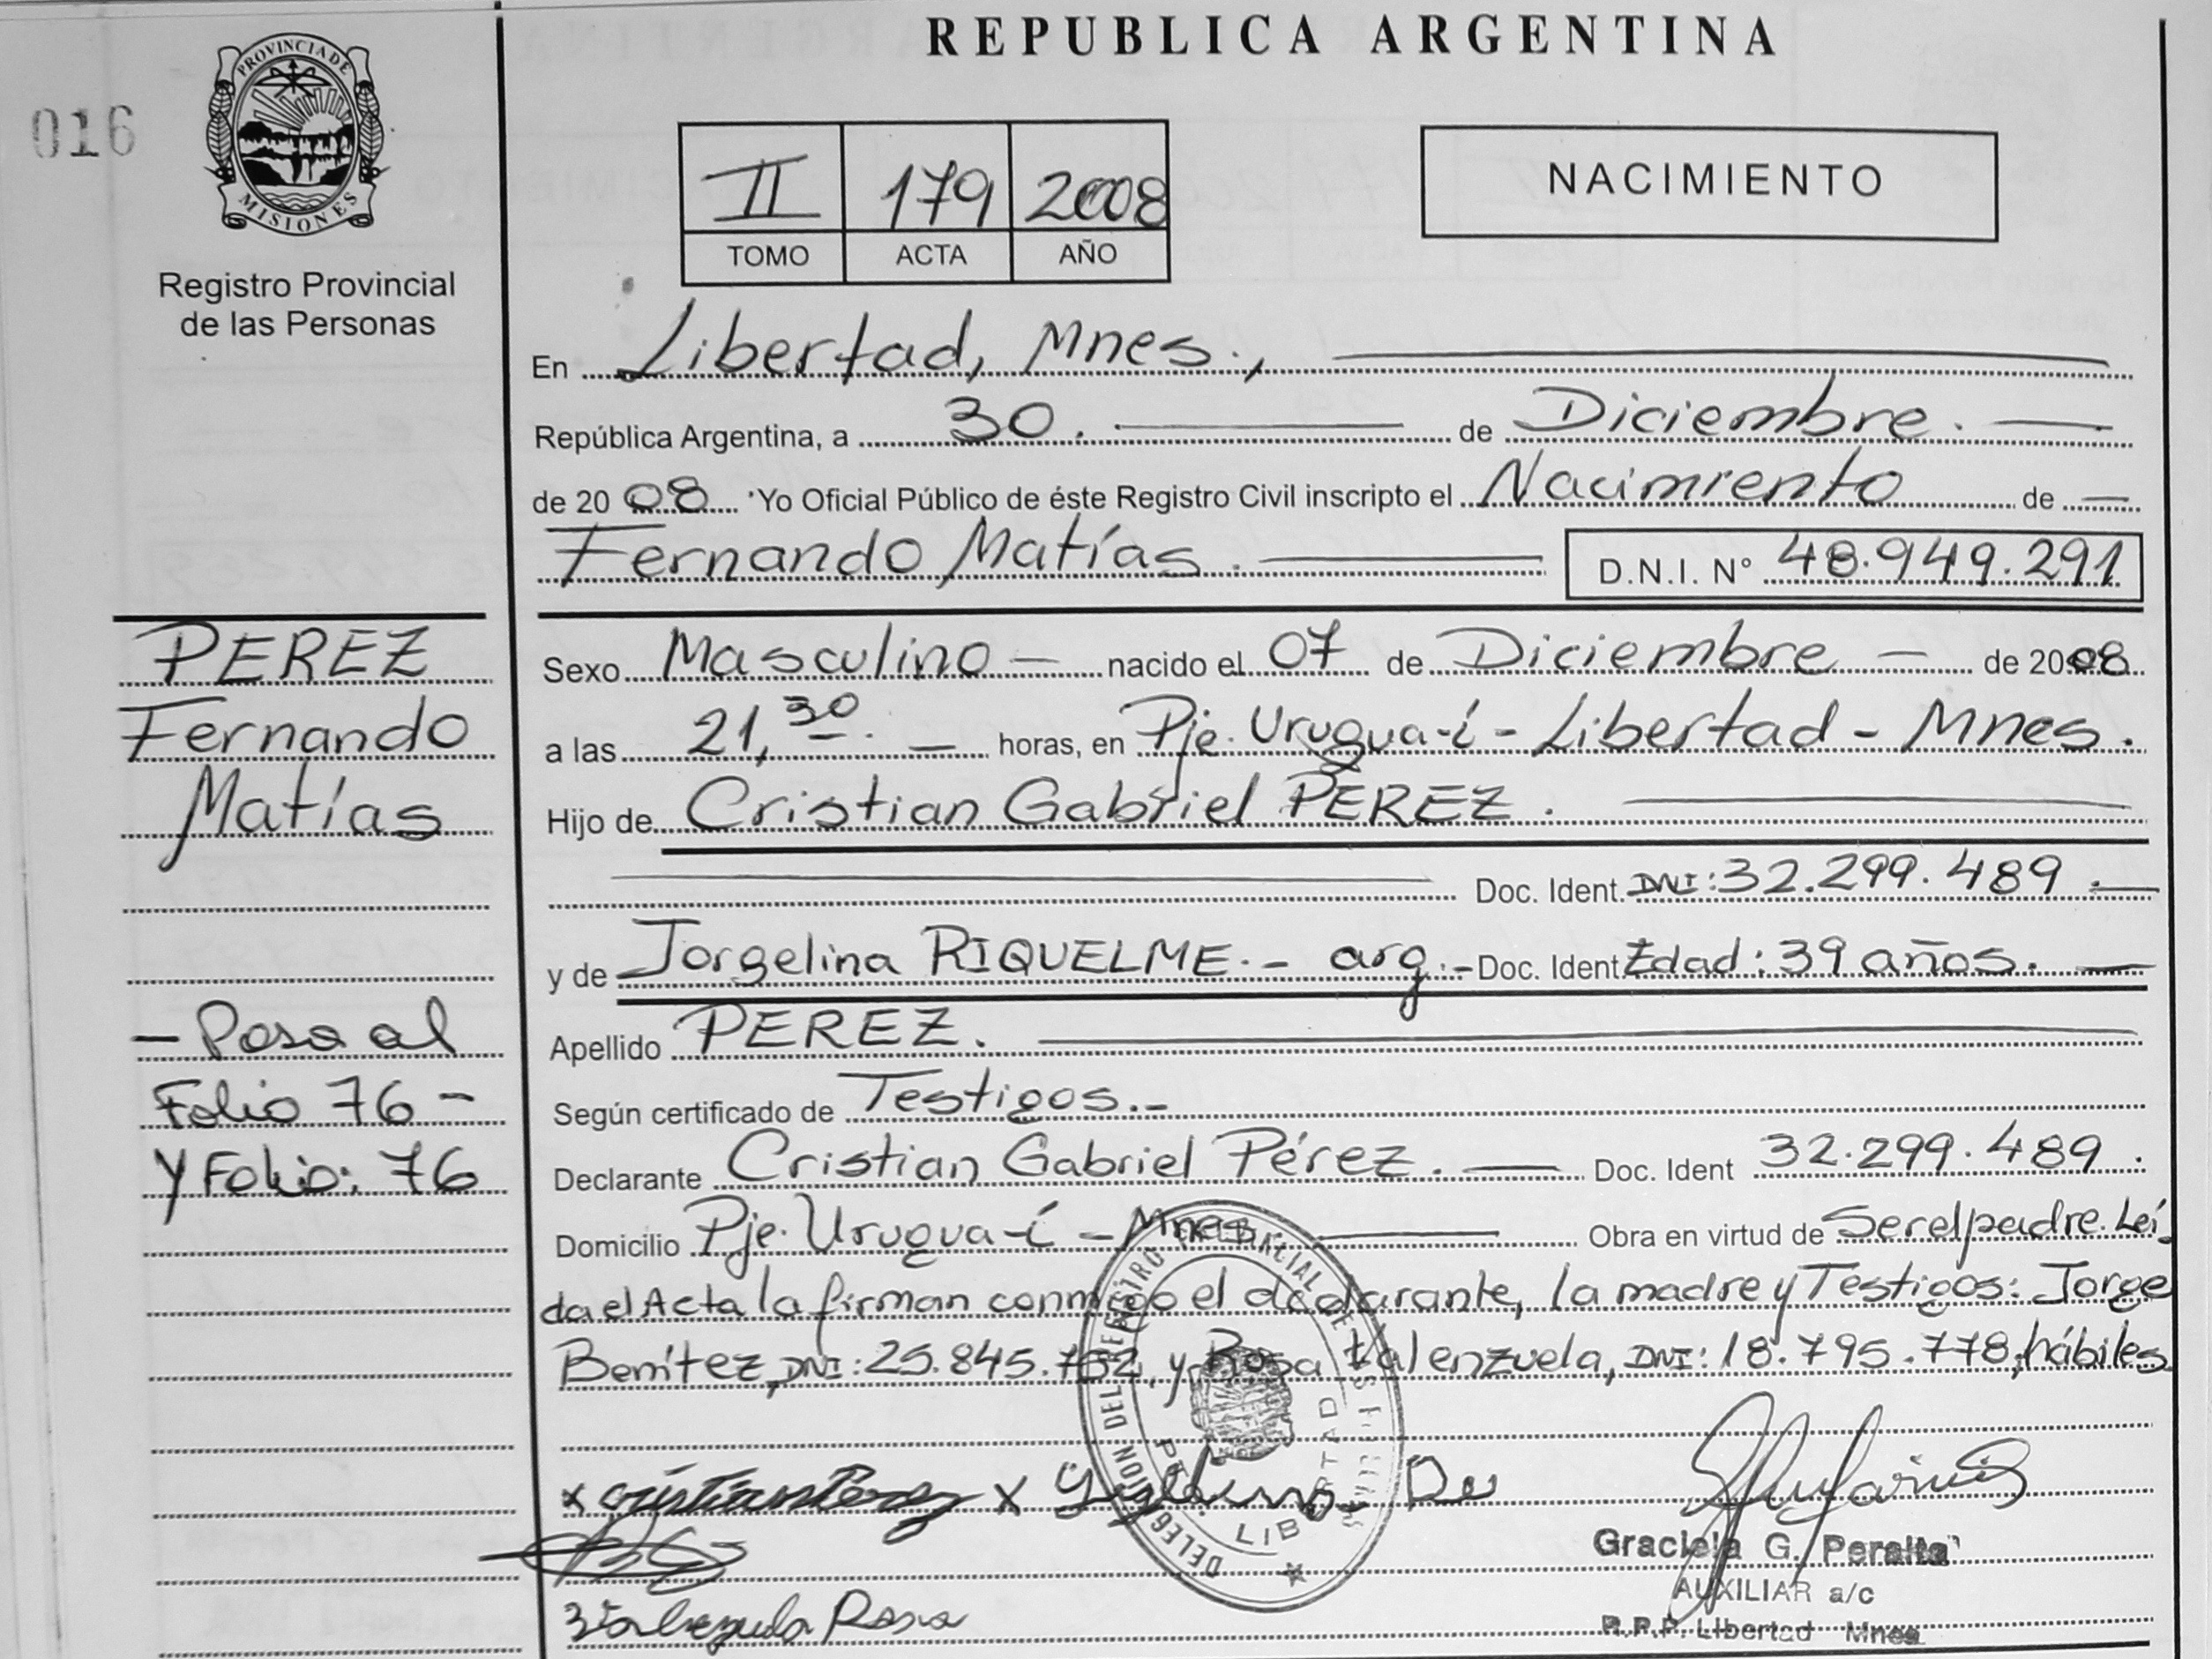 REPUBLICA ARGENTINA
016
PROVINCIA DE
MISIONES
Registro Provincial
de las Personas
II 179 2008
TOMO ACTA AÑO
NACIMIENTO
En Libertad, Mnes.,
República Argentina, a 30. de Diciembre.
de 20 08 Yo Oficial Público de éste Registro Civil inscripto el Nacimiento de
Fernando Matías. D.N.I. N° 48.949.291
PEREZ
Fernando
Matías
- Pasa al
Folio 76 -
Y Folio: 76
Sexo Masculino - nacido el 07 de Diciembre - de 2008
a las 21,30. - horas, en Pje. Urugua-í - Libertad - Mnes.
Hijo de Cristian Gabriel PEREZ.
Doc. Ident. DNI: 32.299.489.
y de Jorgelina RIQUELME.- arg.- Doc. Ident Edad: 39 años.
Apellido PEREZ.
Según certificado de Testigos.-
Declarante Cristian Gabriel Pérez. Doc. Ident 32.299.489.
Domicilio Pje. Urugua-í - Mnes. Obra en virtud de Ser el padre. Leí
da el Acta la firman conmigo el declarante, la madre y Testigos: Jorge
Benítez, DNI: 25.845.732, y Rosa Valenzuela, DNI: 18.795.778, hábiles
x Cristian Perez x
Valenzuela Rosa
LIBERTAD
Graciela G. Peralta
AUXILIAR a/c
R.P.P. Libertad Mnes